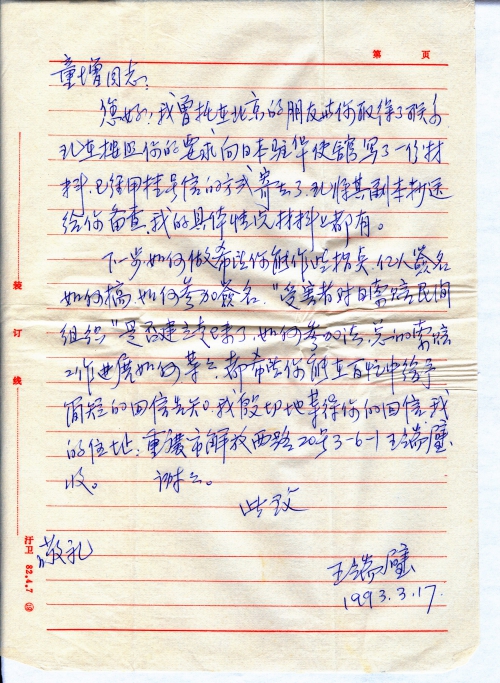 第 页
童增同志：
您好！我曾托在北京的朋友与你取得了联系
现在按照你的要求向日本驻华使馆写了一份材
料，已经用挂号信的方式寄去了，现将其副本抄送
给你备查，我的具体情况材料上都有。
下一步如何做希望你能作些指点，亿人签名
如何搞，如何参加签名，“受害者对日索赔民间
组织”是否建立起来了，如何参加法，总的索赔
工作进展如何等等，都希望你能在百忙中给予
简短的回信告知。我殷切地等待你的回信，我
的住址：重庆市解放西路20号3-6-1王
收。 谢谢。
此致
敬礼
王
1993.3.17.
装
订
线
卫 82.4.7